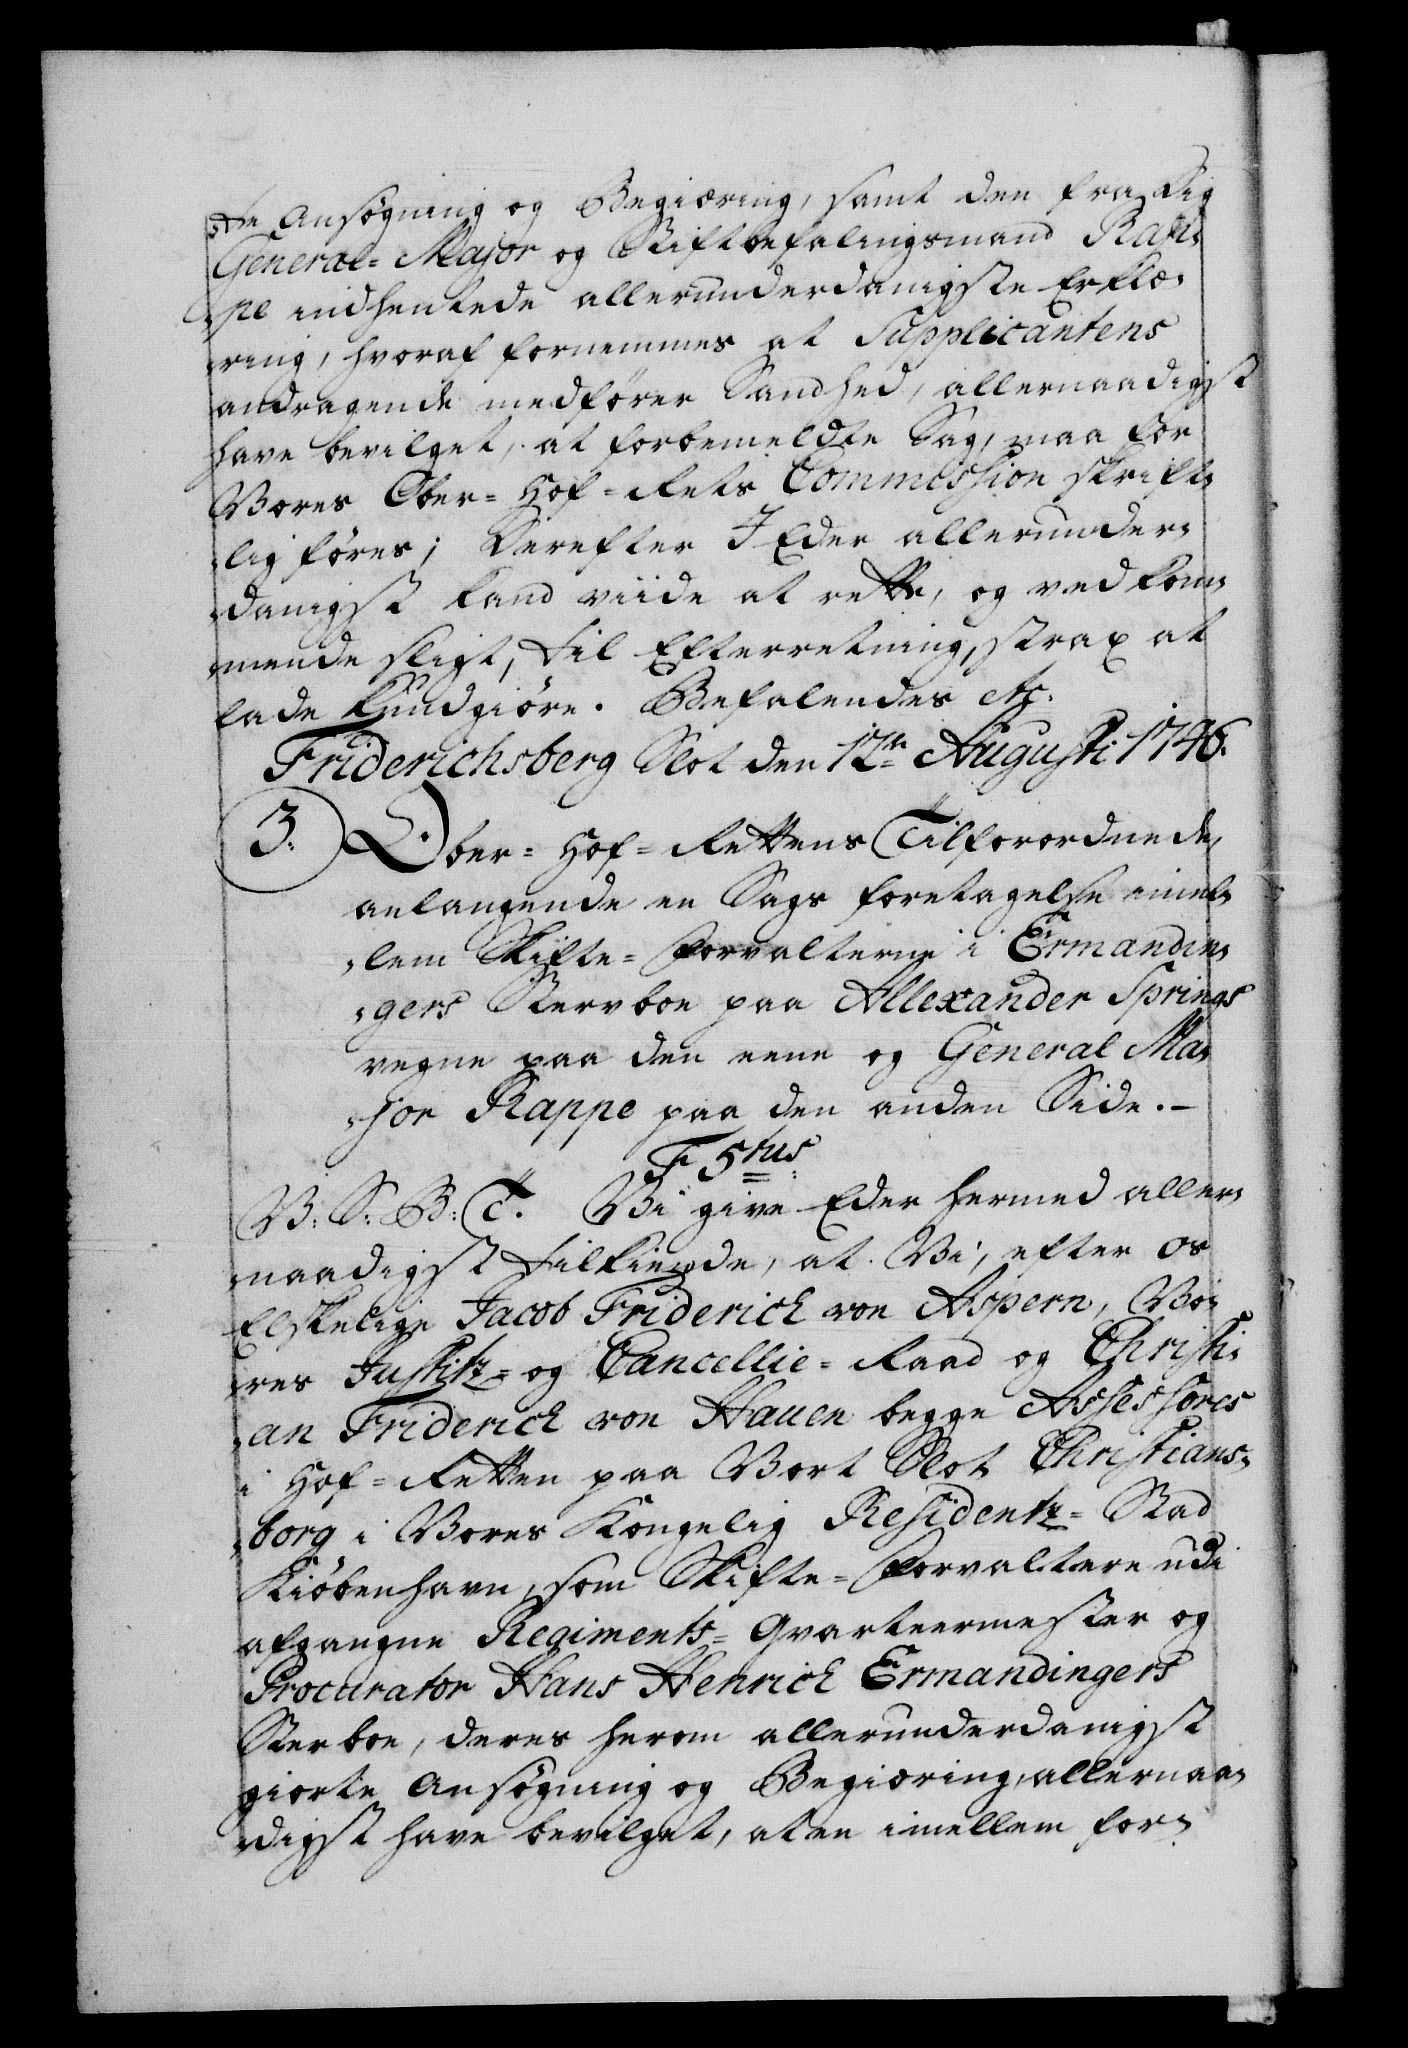 „te Ansøgning og Begiæring, samt den fra Sig
General-Major og Stiftbefalingsmand Rap„
„pe indhentede allerunderdanigste Erklæ„
„ring, hvoraf fornemmes at Supplicantens
andragende medfører Sandhed, allernaadigst
have bevilget, at forbemeldte Sag, maa for
Vores Ober-Hof-Rets Commission skrift„
„lig føres; Derefter I Eder allerunder„
„danigst kand viide at rette, og vedkom„
„mende sligt, til Efterretning, strax at
lade kundgiøre. Befalendes etc.
Friderichsberg Slot den 12te Augusti 1746.
3. Ober-Hof-Rettens Tilforordnede,
anlangende en Sags foretagelse imel„
„lem Skifte-Forvalterne i Ermandin„
„gers Stervboe paa Allexander Springs
vegne paa den eene og General Ma„
„jor Rappe paa den anden Side.-
F 5tus
V: S: B: T. Vi give Eder hermed aller„
„naadigst tilkiende, at Vi, efter os
Elskelige Jacob Friderich von Aspern, Vo„
„res Justitz- og Cancellie-Raad og Christi„
„an Friderich von Hauen begge Assessores
i Hof-Retten paa Vort Slot Christians„
„borg i Vores Kongelig Residentz-Stad
Kiøbenhavn, som Skifte-Forvaltere udi
afgangne Regiments-Qvarteermester og
Procurator Hans Henrich Ermandingers
Sterboe, deres herom allerunderdanigst
giorte Ansøgning og Begiæring, allernaa„
„digst have bevilget, at en imellem for„